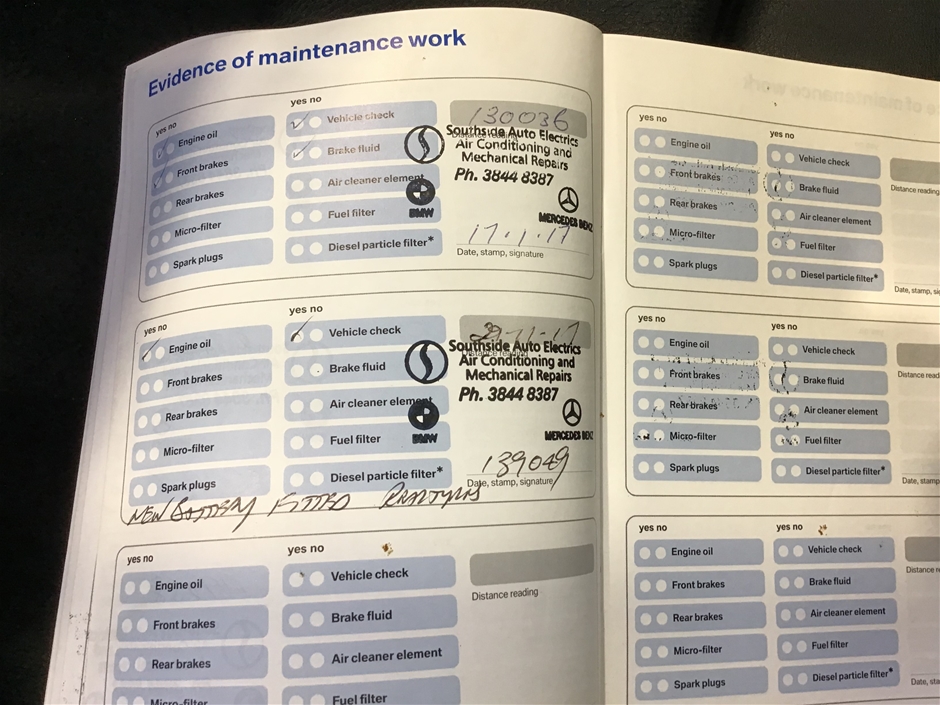 Evidence of maintenance work
yes no
Engine oil
Front brakes
Rear brakes
Micro-filter
Spark plugs
yes no
Vehicle check
Brake fluid
Air cleaner element
Fuel filter
Diesel particle filter*
130036
Southside Auto Electrics
Air Conditioning and
Mechanical Repairs
Ph. 3844 8387
BMW
MERCEDES BENZ
17.1.17
Date, stamp, signature
yes no
Engine oil
Front brakes
Rear brakes
Micro-filter
Spark plugs
yes no
Vehicle check
Brake fluid
Air cleaner element
Fuel filter
Diesel particle filter*
Southside Auto Electrics
Air Conditioning and
Mechanical Repairs
Ph. 3844 8387
BMW
MERCEDES BENZ
139049
Date, stamp, signature
NEW BATTERY FITTED
yes no
Engine oil
Front brakes
Rear brakes
Micro-filter
yes no
Vehicle check
Brake fluid
Air cleaner element
Fuel filter
Distance reading
yes no
Engine oil
Front brakes
Rear brakes
Micro-filter
Spark plugs
yes no
Vehicle check
Brake fluid
Air cleaner element
Fuel filter
Diesel particle filter*
Distance reading
Date, stamp, si
yes no
Engine oil
Front brakes
Rear brakes
Micro-filter
Spark plugs
yes no
Vehicle check
Brake fluid
Air cleaner element
Fuel filter
Diesel particle filter*
Distance read
Date, stamp
yes no
Engine oil
Front brakes
Rear brakes
Micro-filter
Spark plugs
yes no
Vehicle check
Brake fluid
Air cleaner element
Fuel filter
Diesel particle filter*
Distance r
Date, sta